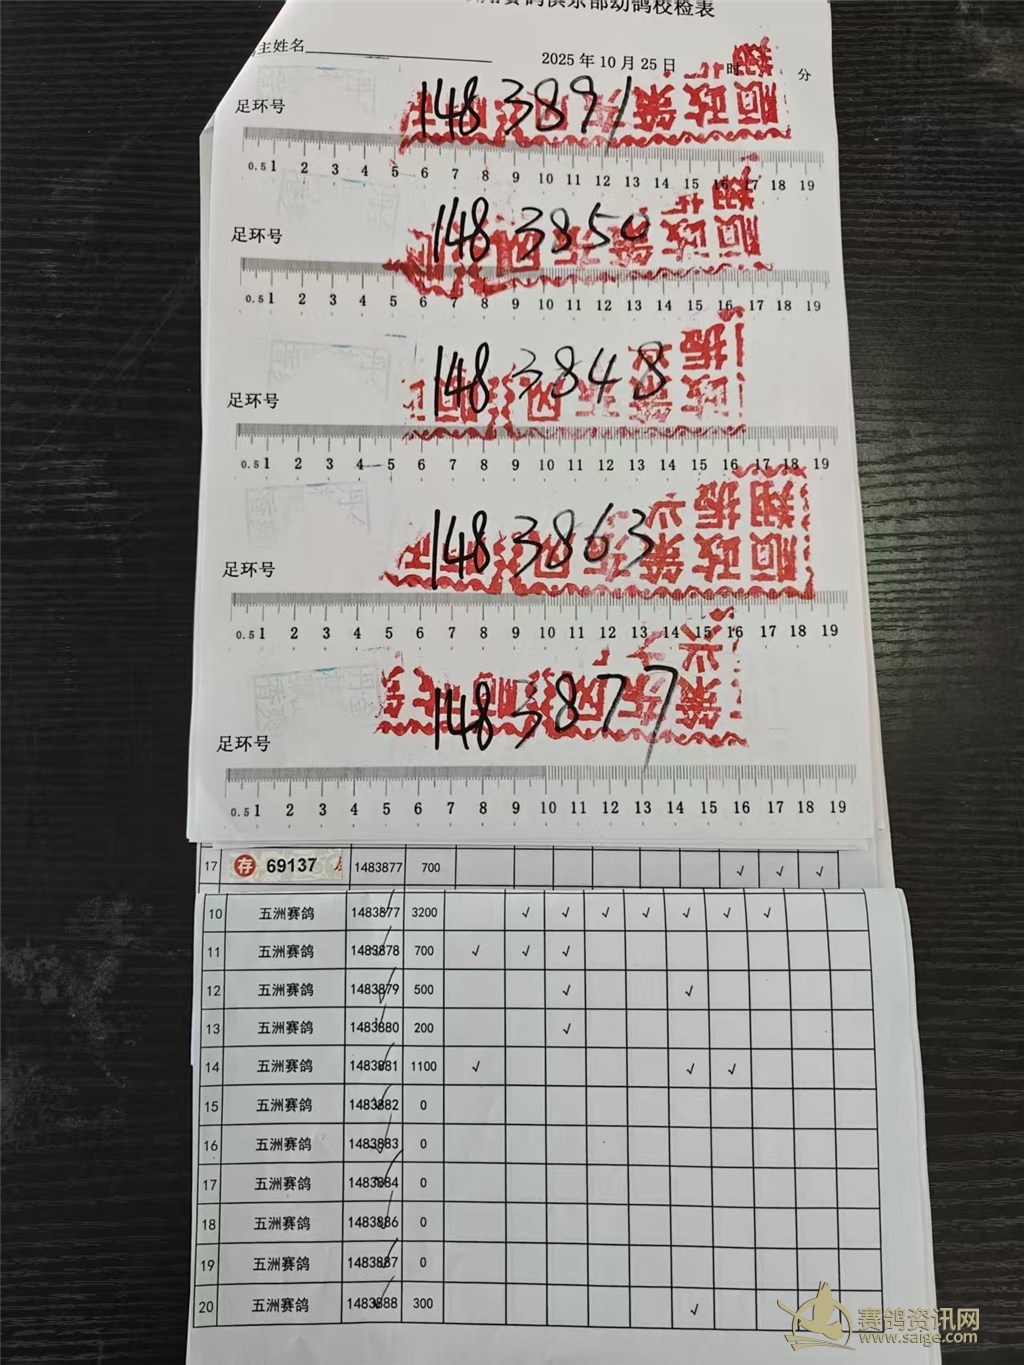 赛鸽俱乐部幼鸽校检表
主姓名
2025 年 10 月 25 日 时 分
足环号 148 3891
0.5 1 2 3 4 5 6 7 8 9 10 11 12 13 14 15 16 17 18 19
足环号 148 3850
0.5 1 2 3 4 5 6 7 8 9 10 11 12 13 14 15 16 17 18 19
足环号 148 3848
0.5 1 2 3 4 5 6 7 8 9 10 11 12 13 14 15 16 17 18 19
足环号 148 3863
0.5 1 2 3 4 5 6 7 8 9 10 11 12 13 14 15 16 17 18 19
足环号 148 3877
0.5 1 2 3 4 5 6 7 8 9 10 11 12 13 14 15 16 17 18 19
17 存 69137 1483877 700 √ √ √
10 五洲赛鸽 1483877 3200 √ √ √ √ √ √ √
11 五洲赛鸽 1483878 700 √ √ √
12 五洲赛鸽 1483879 500 √ √
13 五洲赛鸽 1483880 200 √
14 五洲赛鸽 1483881 1100 √ √ √
15 五洲赛鸽 1483882 0
16 五洲赛鸽 1483883 0
17 五洲赛鸽 1483884 0
18 五洲赛鸽 1483886 0
19 五洲赛鸽 1483887 0
20 五洲赛鸽 1483888 300 √
赛鸽资讯网
www.saige.com